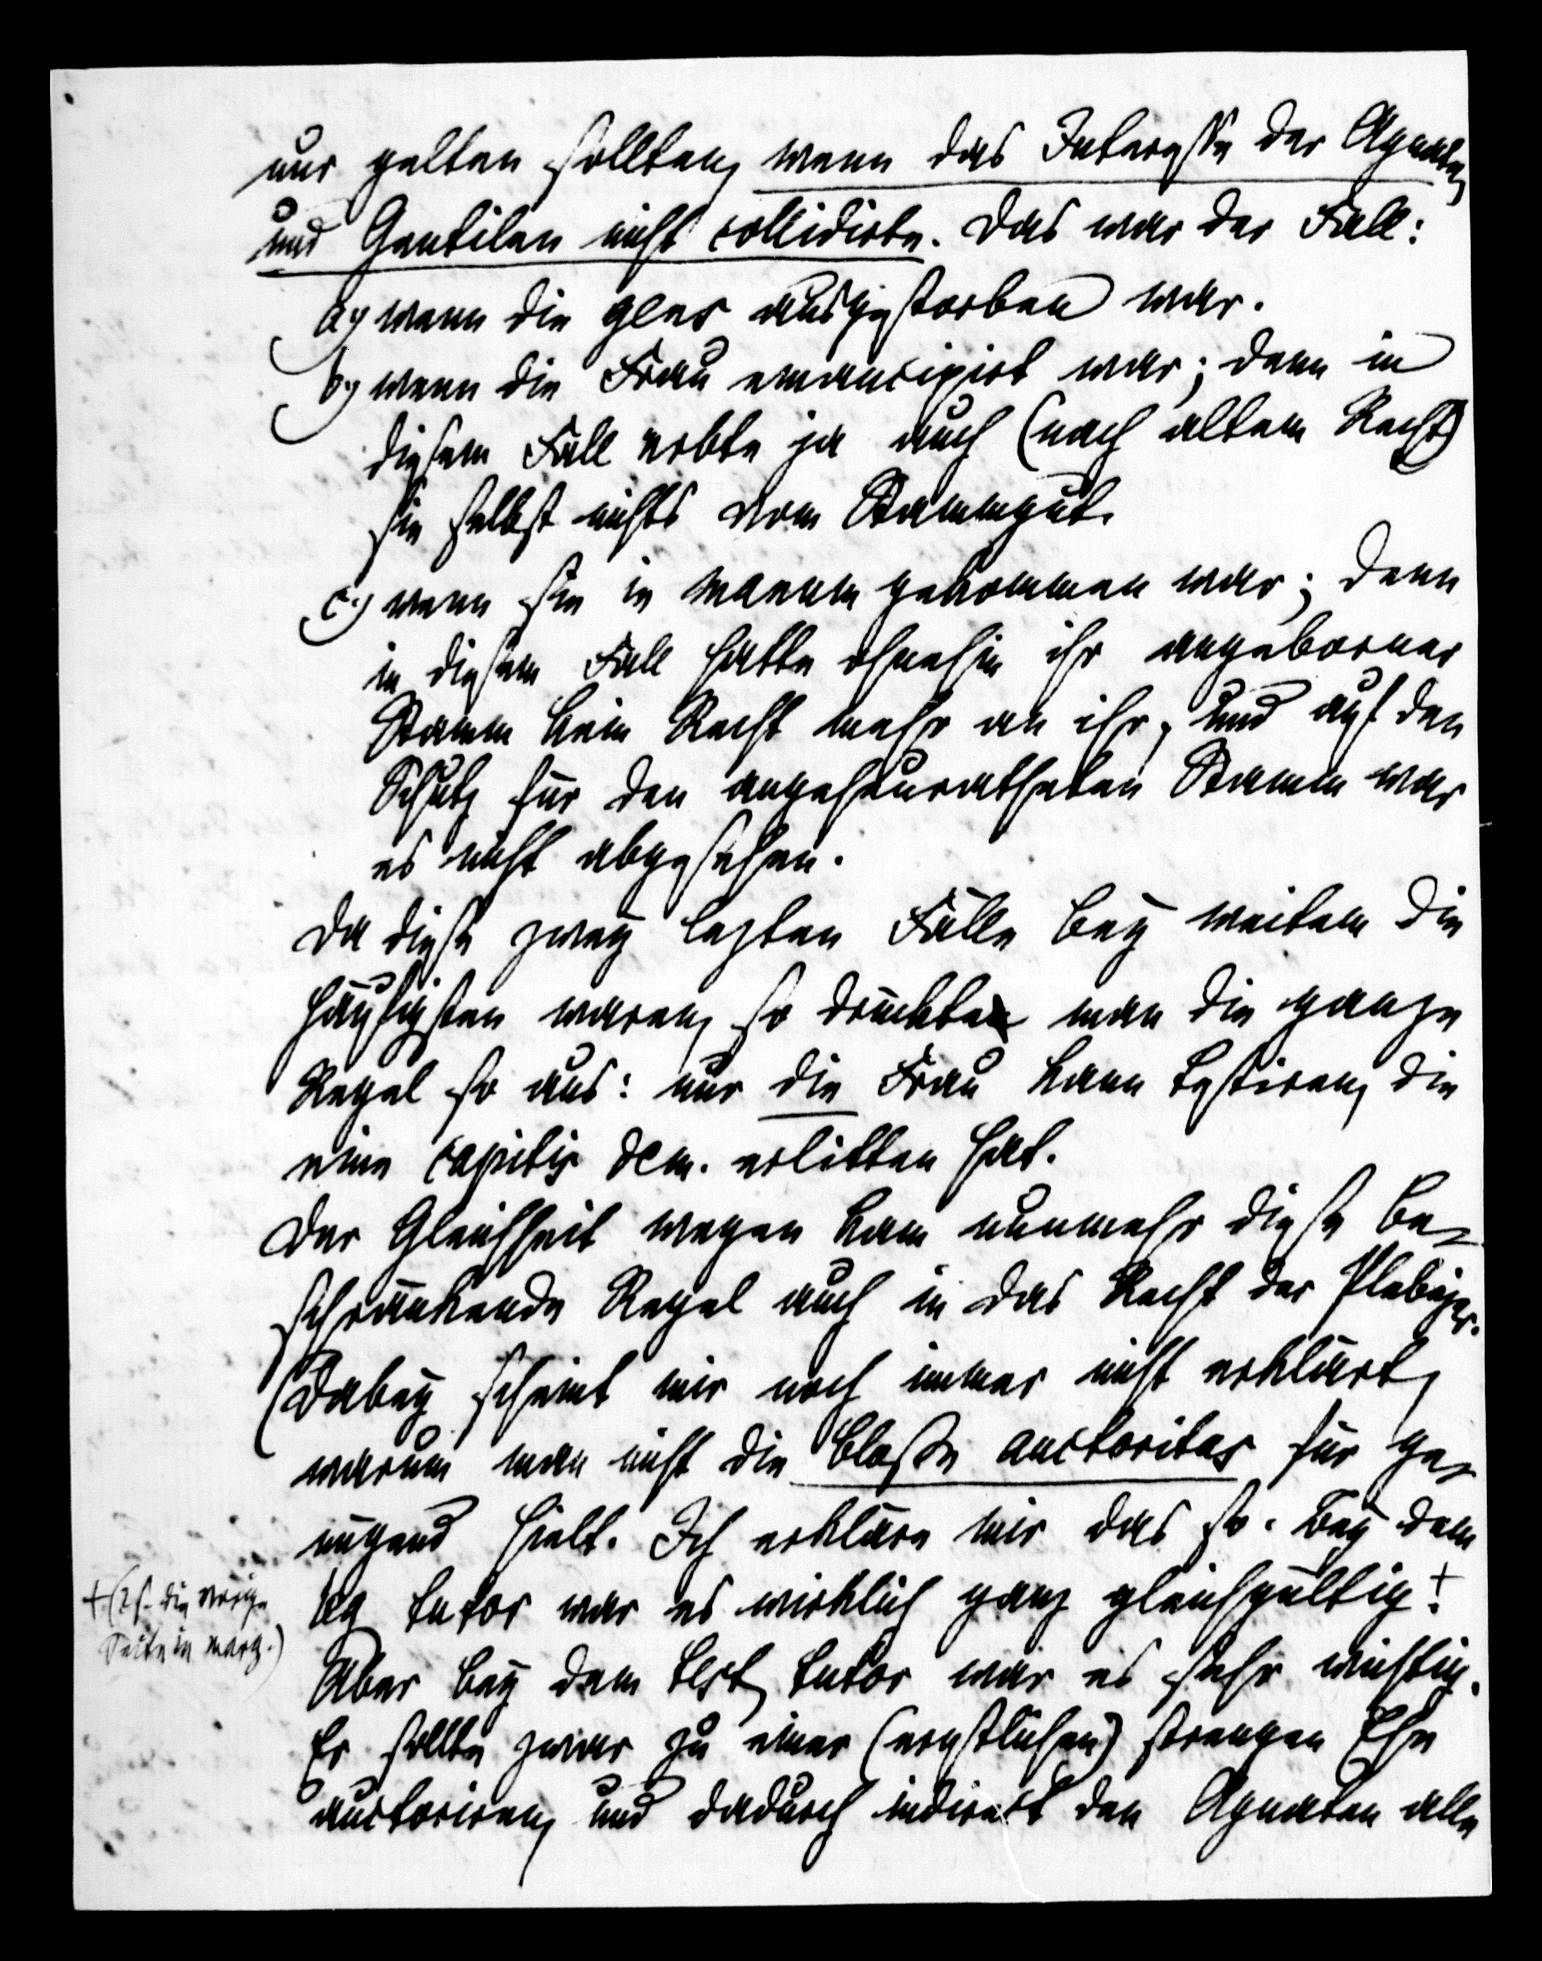 nur gelten sollten, wenn das Interesse der Agnaten
und Gentilen nicht collidirte. Das war der Fall:
a) wenn die gens ausgestorben war.
b) wenn die Frau emancipirt war; denn in
diesem Fall erbte ja auch (nach altem Recht)
sie selbst nichts vom Stammgut.
c) wenn sie in manum gekommen war; denn
in diesem Fall hatte ohnehin ihr angeborner
Stamm kein Recht mehr an ihr, und auf den
Schutz für den angeheuratheten Stamm war
es nicht abgesehen.
Da diese zwey lezten Fälle bey weitem die
häufigsten waren, so druckte man die ganze
Regel so aus: nur die Frau kann testiren, die
eine capitis dem. erlitten hat.
Der Gleichheit wegen kam nunmehr diese be-
schränkende Regel auch in das Recht der Plebejer.
(Dabey scheint mir noch immer nicht erklärt,
warum man nicht die bloße auctoritas für ge-
nügend hielt. Ich erkläre mir das so. Bey dem
leg tutor war es wirklich ganz gleichgültig +.
+ (s. die vorige
Seite in marg.)
Aber bey dem test. tutor war es sehr wichtig.
Er sollte zwar zu einer (ernstlichen) strengen Ehe
auctoriren, und dadurch indirect den Agnaten alle